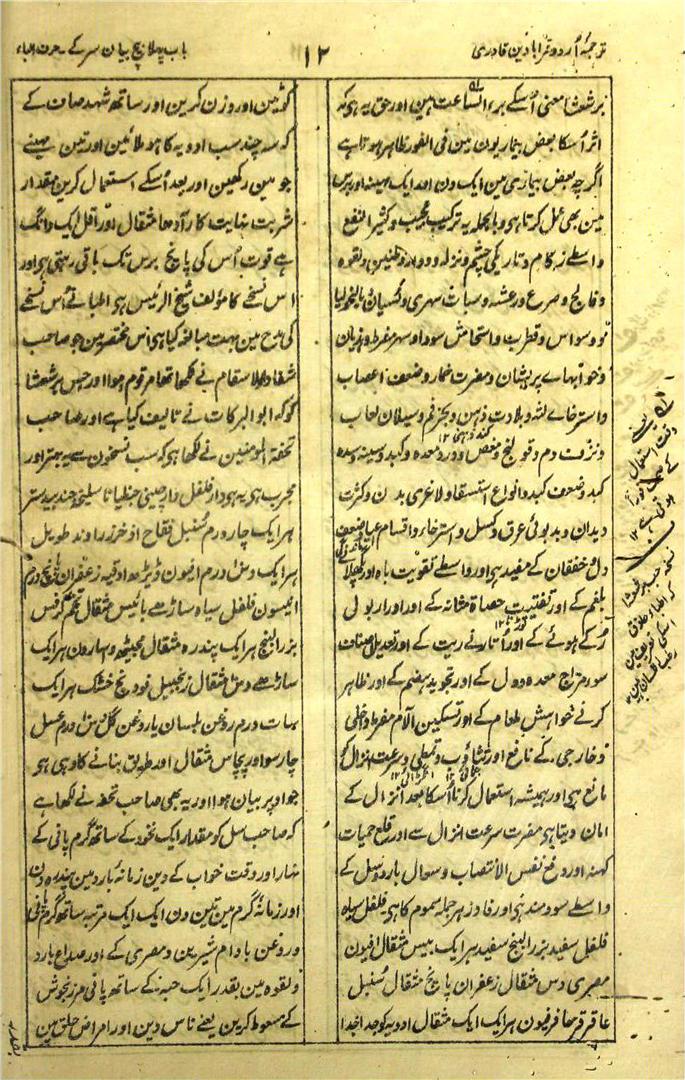 ترجمہ اردو قرابادین قادری
۱۲
باب پہلا بیچ بیان سر کے ۔ حرف الباء
برشعثا معنی اُسکے برء الساعت ہین اور حق یہ ہی کہ
اثر اُسکا بعض بیماریون مین فی الفور ظاہر ہوتا ہے
اگرچہ بعض بیماری مین ایک دن اور ایک مہینہ اور برس
مین بھی عمل کرتا ہی و بالجملہ یہ ترکیب عجیب و کثیر النفع
واسطے زکام و تاریکی چشم و نزلہ و دوار و طنین و لقوہ
و فالج و صرع و رعشہ و سبات سہری و نسیان و مالیخولیا
و وسواس و قطرب و استحاش سودا و سہر مفرط و ہذیان
و خوابہاے پریشان و مضرت خمار و ضعف اعصاب
و استرخاے لثہ و بلادت ذہن و بخر فم و سیلان لعاب
و نزف دم و قولنج و مغص و درد معدہ و کبد و سینہ و سدہ
کبد و ضعف کبد و انواع استسقا و لاغری بدن و کثرت
دیدان و بدبوئی عرق و کسل و استرخا و اقسام عیا ضعف
دل و خفقان کے مفید ہی اور واسطے تقویت باہ اور
بلغم کے اور تفتیت حصاة مثانہ کے اور ادرار بول
رُکے ہوئے کے اور اُتارنے ریت کے اور تعدیل اصناف
سوء مزاج معدہ و دل کے اور تجوید ہضم کے اور ظاہر
کرنے خواہش طعام کے اور تسکین آلام مفرط داخلی
و خارجی کے نافع اور تثاوب و تمطی و سرعت انزال کو
مانع ہی اور ہمیشہ استعمال کرنا اُسکا بعد انزال کے
امان دیتا ہی مضرت سرعت انزال سے اور قلع حمیات
کہنہ اور دفع نفس الانتصاب و سوال بارد و سل کے
واسطے سودمند ہی اور فادزہر جملہ سموم کا ہی فلفل سیاہ
فلفل سفید بزرالبنج سفید ہر ایک بیس مثقال افیون
مصری دس مثقال زعفران پانچ مثقال سُنبل
عاقرقرحا فرفیون ہر ایک ایک مثقال ادویہ کو جدا جدا
کوٹین اور وزن کرین اور ساتھ شہد صاف کے
کہ سہ چند سب ادویہ کا ہو ملائین اور تین مہینے
جو مین رکھین اور بعد اُسکے استعمال کرین مقدار
شربت نہایت کار آدھا مثقال اور اقل ایک دانگ
ہے قوت اُس کی پانچ برس تک باقی رہتی ہی اور
اس نسخے کا مؤلف شیخ الرئیس ہی اطبا نے اُس نسخے
کی مدح مین بہت مبالغہ کیا ہی اس مختصر مین جو صاحب
شفاء الاسقام نے لکھا تھا مرقوم ہوا اور جس برشعثا
کو کہ ابو البرکات نے تالیف کیا ہے اور صاحب
تحفة المومنین نے لکھا ہی کہ سب نسخون سے بہتر اور
مجرب ہی یہ ہی دار فلفل دارچینی جنطیانا سلیخہ جندبیدستر
ہر ایک چار درم سُنبل فقاح اذخر زراوند طویل
ہر ایک دس درم افیون ڈیڑھ اوقیہ زعفران پنج درم
انیسون فلفل سیاہ ساڑھے بائیس مثقال تخم کرفس
بزرالبنج ہر ایک پندرہ مثقال مجیٹھ و ہارون ہر ایک
ساڑھے دس مثقال زنجبیل فودنج خشک ہر ایک
سات درم روغن بلسان یا روغن گل دس درم عسل
چار سو اور پچاس مثقال اور طریق بنانے کا وہی ہی
جو اوپر بیان ہوا اور یہ بھی صاحب تحفہ نے لکھا ہے
کہ صاحب سل کو مقدار ایک نخود کے ساتھ گرم پانی کے
نہار اور وقت خواب کے دین زمانہ بارد مین پندرہ دن
اور زمانہ گرم مین تین دن ایک ایک مرتبہ ساتھ گرم پانی
و روغن بادام شیرین و مصری کے اور صداع بارد
و لقوہ مین بقدر ایک حبہ کے ساتھ پانی مرزنجوش
کے سعوط کرین یعنے ناس دین اور امراض حلق مین